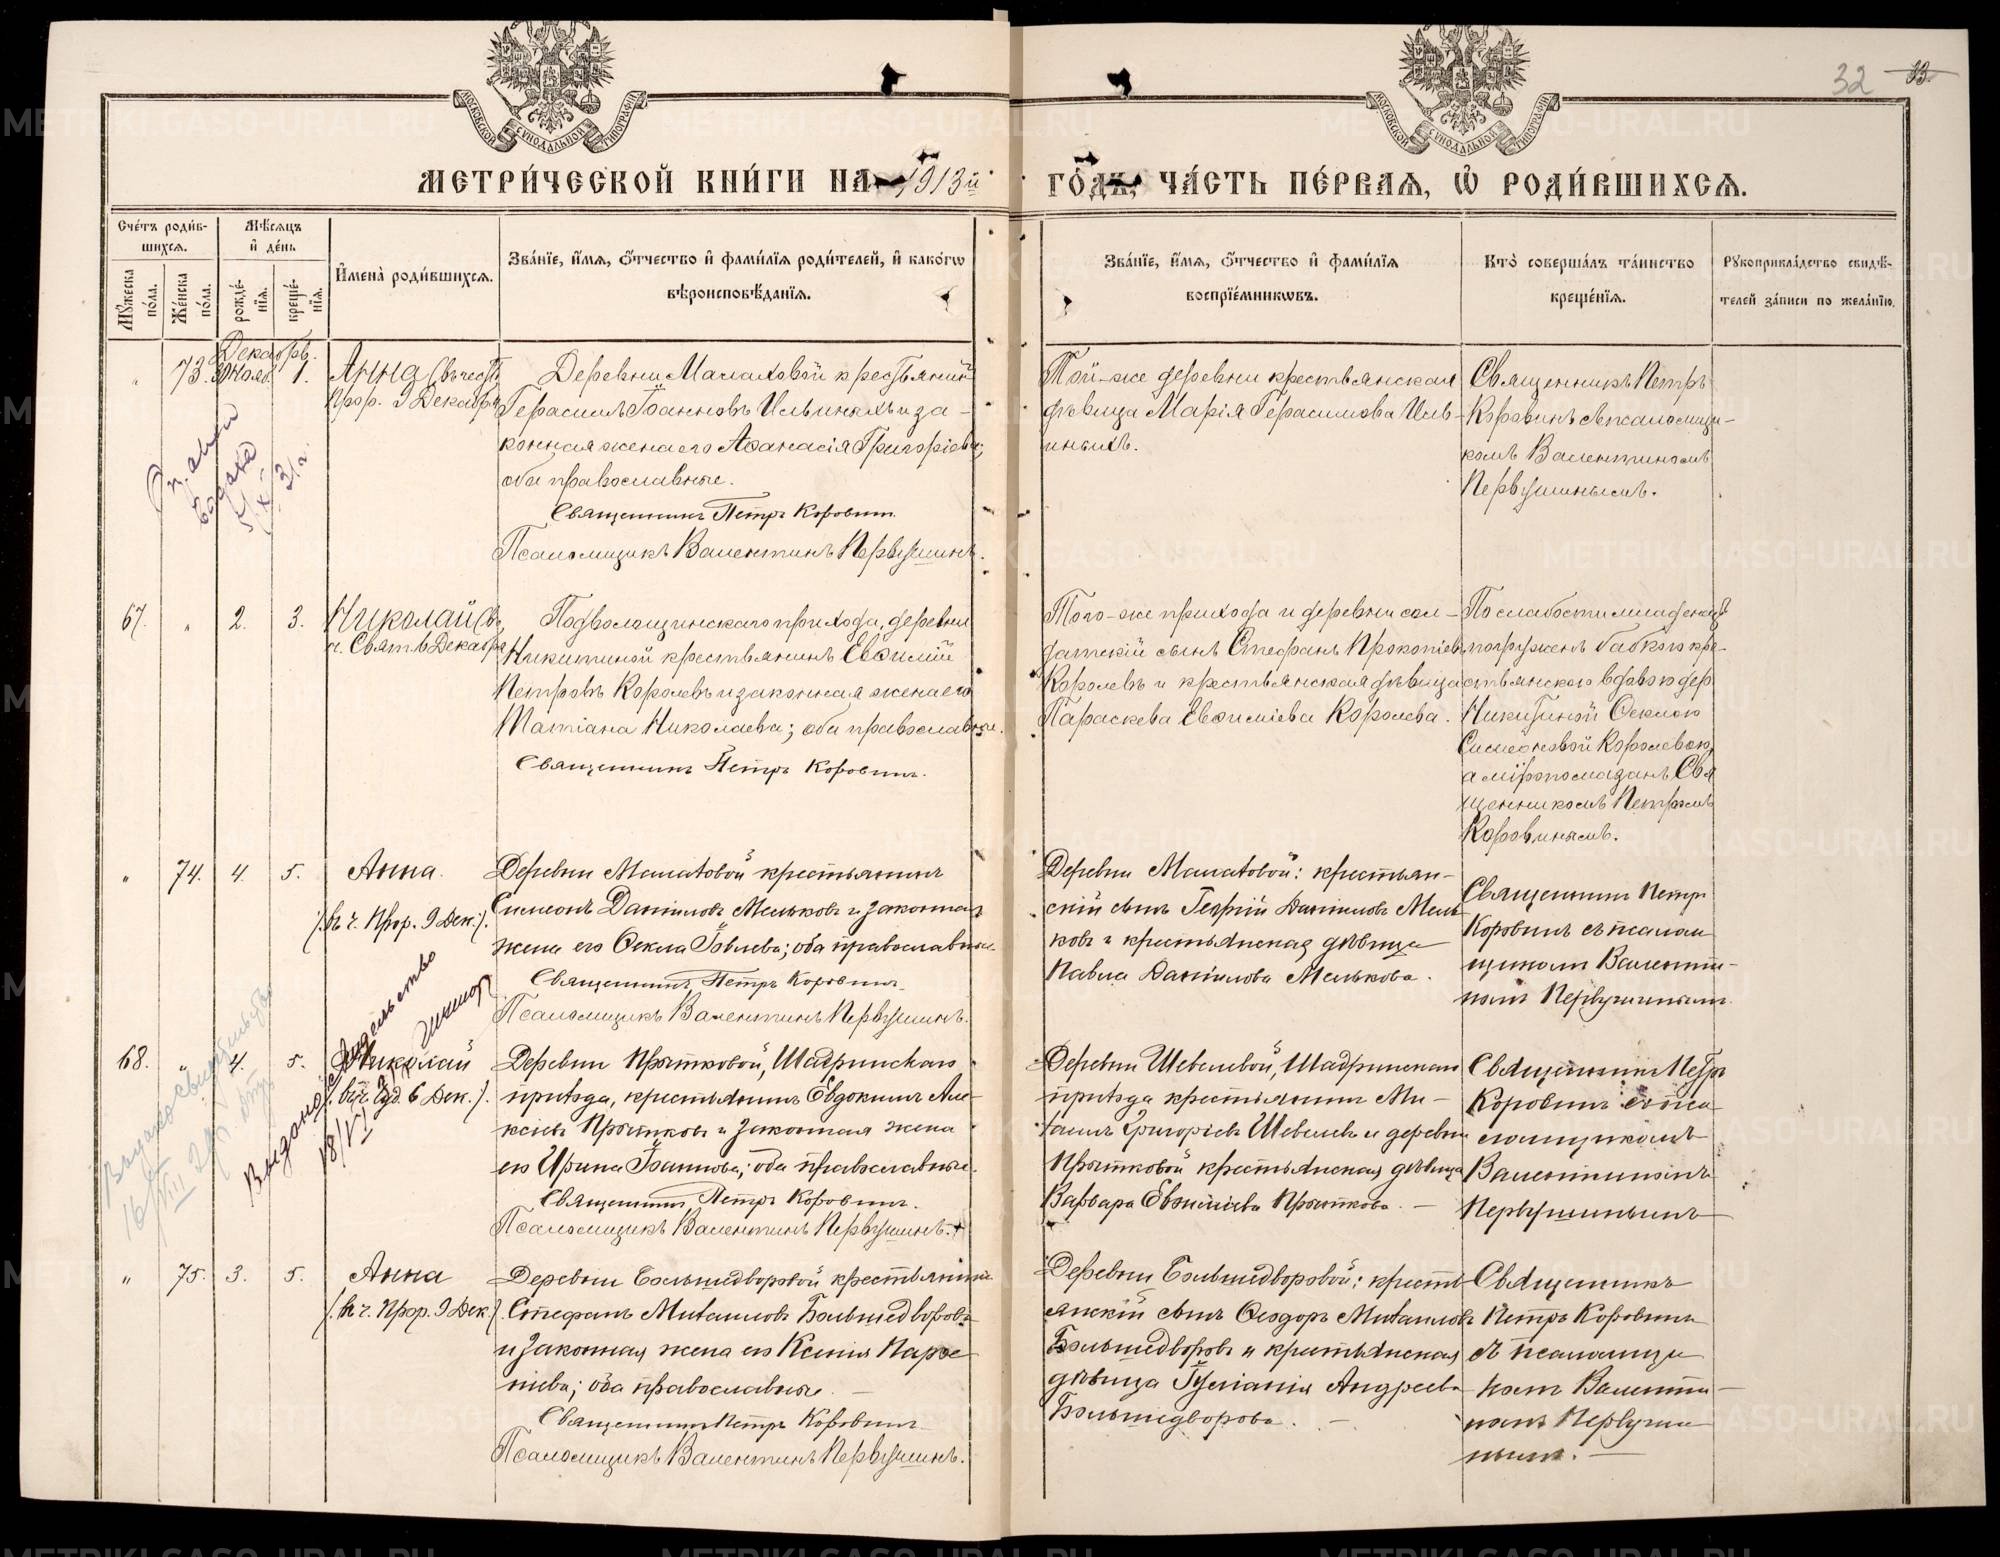 32
33.
МОСКОВСКОЙ СУНОДАЛЬНОЙ ТИПОГРАФІИ
МОСКОВСКОЙ СУНОДАЛЬНОЙ ТИПОГРАФІИ
МЕТРИ́ЧЕСКОЙ КНИ́ГИ НА 1913й ГО́ДЪ, ЧА́СТЬ ПЕ́РВАѦ, Ѡ҆ РОДИ́ВШИХСѦ.
Сче́тъ роди́в-
шихсѧ.
Мѣ́сѧцъ
и҆ де́нь
Му́жеска по́ла.
Же́нска по́ла.
рожде́-нїѧ.
креще́-нїѧ.
И҆мена̀ роди́вшихсѧ.
Зва́нїе, и҆́мѧ, ѻ҆́тчество и҆ фами́лїѧ роди́телей, и҆ како́гѡ
вѣроисповѣ́данїѧ.
Зва́нїе, и҆́мѧ, ѻ҆́тчество и҆ фами́лїѧ
воспрїе́мникѡвъ.
Кто̀ соверша́лъ та́инство
креще́нїѧ.
Рꙋкоприкла́дство свидѣ́-
телей за́писи по жела́нїю.
Декабрь.
73. 30 Нояб. 1.
Анна (въ честь
Прор. 9 Декабря
Деревни Малаховой крестьянинъ
Герасимъ Іоанновъ Ильиныхъ и за-
конная жена его Аѳанасія Григоріева;
оба православные.
Священникъ Петръ Коровинъ.
Псаломщикъ Валентинъ Первушинъ.
Той-же деревни крестьянская
дѣвица Марія Герасимова Иль-
иныхъ.
Священникъ Петръ
Коровинъ съ псаломщи-
комъ Валентиномъ
Первушинымъ.
67. " 2. 3.
Николай (въ
ч. Свят. 6 Декабря
Подволошинскаго прихода, деревни
Никитиной крестьянинъ Евѳимій
Петровъ Королевъ и законная жена его
Татіана Николаева; оба православные.
Священникъ Петръ Коровинъ.
Того-же прихода и деревни сол-
датскій сынъ Стефанъ Прокопіевъ
Королевъ и крестьянская дѣвица
Параскева Евѳиміева Королева.
По слабости младенецъ
погруженъ бабкою кре-
стьянскою вдовою дер.
Никитиной Ѳеклою
Симеоновой Королевою,
а мѵропомазанъ Свя
щенникомъ Петромъ
Коровинымъ.
" 74. 4. 5.
Анна.
/. въ ч. Прор. 9 Дек./.
Деревни Малаховой крестьянинъ
Симеонъ Даниловъ Мельковъ и законная
жена его Ѳекла Іовлева; оба православные.
Священникъ Петръ Коровинъ.
Псаломщикъ Валентинъ Первушинъ.
Деревни Малаховой: крестьян-
скій сынъ Георгій Даниловъ Мель
ковъ и крестьянская дѣвица
Павла Данилова Мелькова.
Священникъ Петръ
Коровинъ съ псалом
щикомъ Валенти-
номъ Первушинымъ.
68. " 4. 5.
Николай
/. въ ч. Чуд. 6 Дек./.
Деревни Прытковой, Шадринскаго
приѣзда, крестьянинъ Евдокимъ Але-
ксіевъ Прытковъ и законная жена
его Ирина Іоаннова; оба православные.
Священникъ Петръ Коровинъ.
Псаломщикъ Валентинъ Первушинъ.
Деревни Шевелевой, Шадринскаго
приѣзда крестьянинъ Ми-
хаилъ Григоріевъ Шевелевъ и деревни
Прытковой крестьянская дѣвица
Варвара Евѳиміева Прыткова. —
Священникъ Петръ
Коровинъ съ пса-
ломщикомъ
Валентиномъ
Первушинымъ
" 75. 3. 5.
Анна
/. въ ч. Прор. 9 Дек./.
Деревни Большедворовой крестьянинъ
Стефанъ Михаиловъ Большедворовъ
и законная жена его Ксенія Парѳе-
ніева; оба православные. —
Священникъ Петръ Коровинъ
Псаломщикъ Валентинъ Первушинъ.
Деревни Большедворовой: кресть-
янскій сынъ Ѳеодоръ Михаиловъ
Большедворовъ и крестьянская
дѣвица Іуліанія Андреева
Большедворова. —
Священникъ
Петръ Коровинъ
съ псаломщи
комъ Валенти-
номъ Первуши
нымъ. —